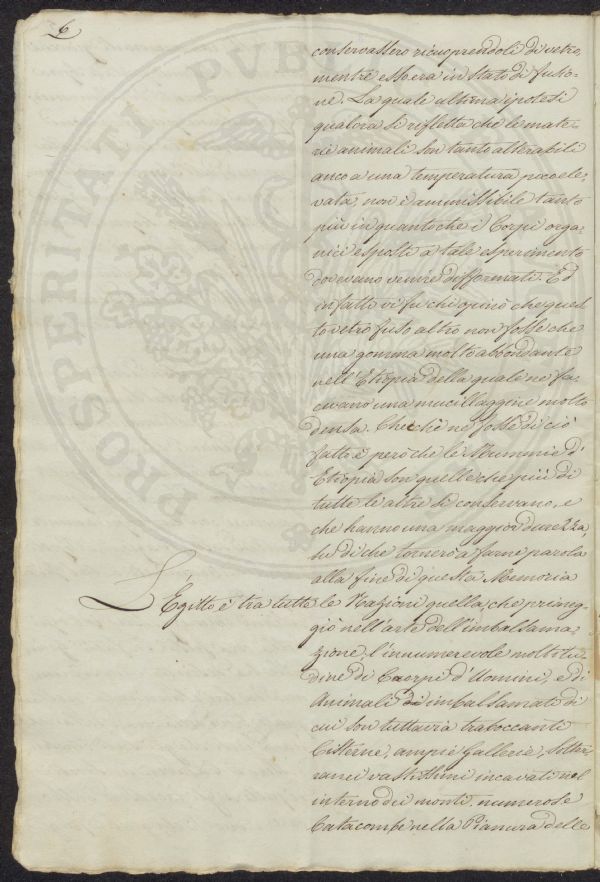 6
conservassero ricuoprendoli di vetro,
mentre esso era in stato di fusio=
ne. La quale ultima ipotesi
qualora si rifletta che le mate=
rie animali son tanto alterabili
anco a una temperatura poco ele,
vata, non è ammissibile tanto
più in quanto che i Corpi orga=
nici esposti a tale esperimento
dovevano venire difformati. Ed
infatti vi fu chi opinò che ques=
to vetro fuso altro non fosse che
una gomma molto abbondante
nell'Etiopia della quale ne fa,
cevano una mucillaggine molto
densa. Checchè ne fosse di ciò
fatto è però che le Mummie d'
Etiopia son quelle che più di
tutte le altre si conservano, e
che hanno una maggior durezza,
lu di che tornerò a farne parola
alla fine di questa Memoria
L'Egitto è tra tutte le Nazioni quella, che primeg=
giò nell'arte dell'imbalsama=
zione, l'innumerevole moltitu=
dine di Corpi d'Uomini, e di
Animali di imbalsamati di
cui son tuttavia traboccanti
Cisterne, ampie Gallerie, Sotter,
ranei vastissimi incavati nel
interno dei monti, numerose
Catacombe nella Pianura delle
PROSPERITATI PUBLICAE